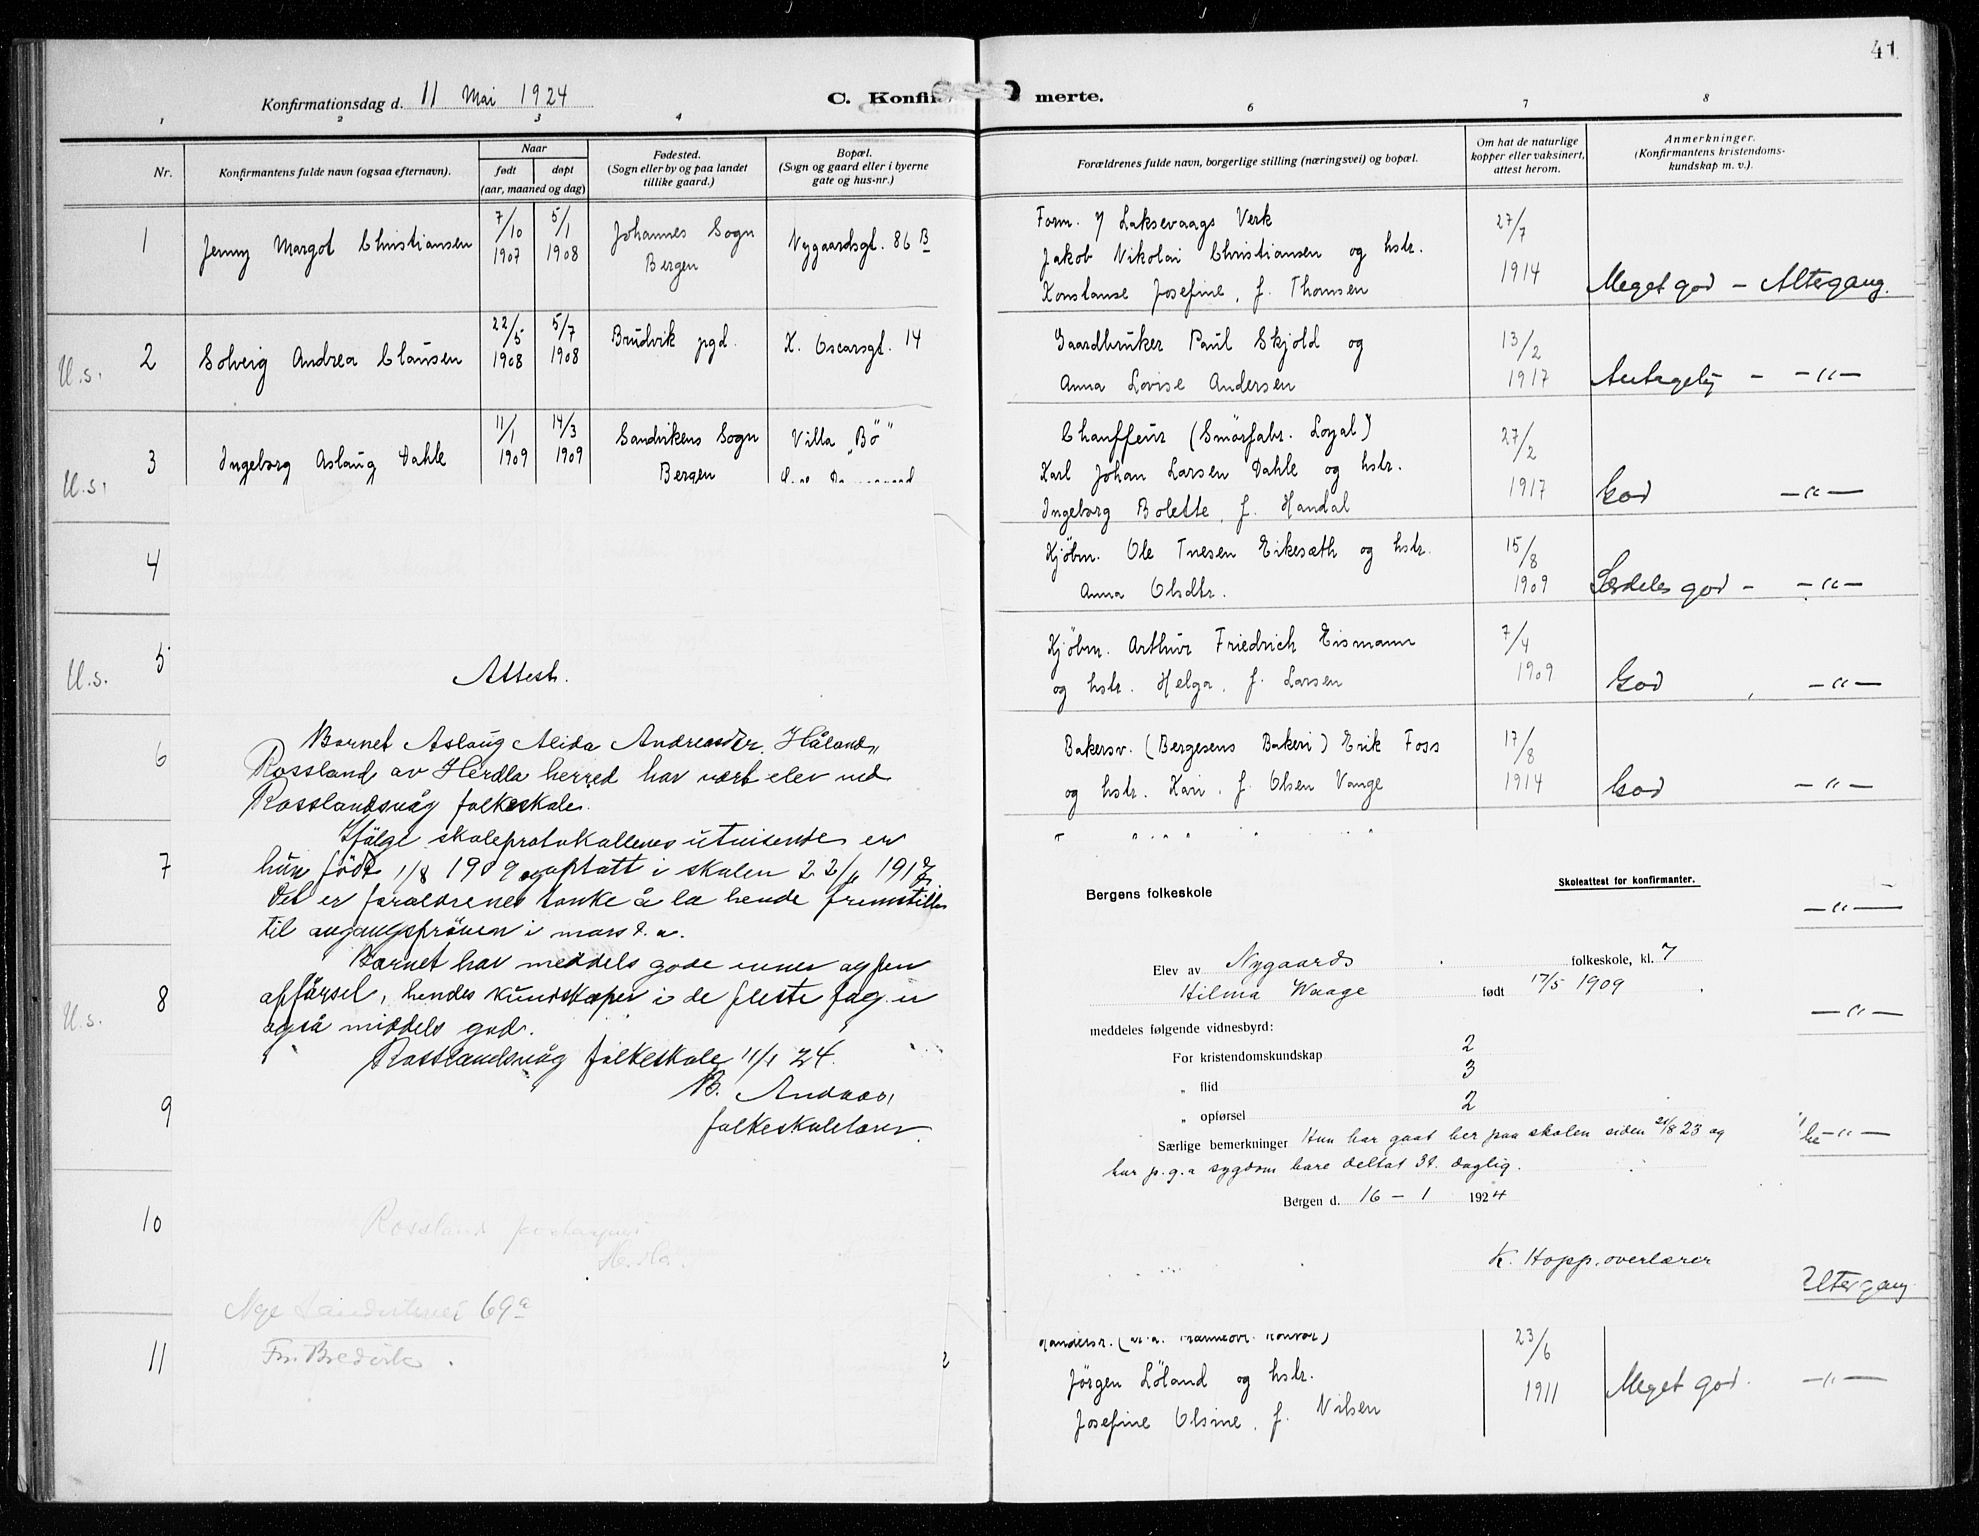 41
Konfirmationsdag d. 11 Mai 1924
C. Konfir merte.
1 2 3 4 6 7 8
Nr.
Konfirmantens fulde navn (ogsaa efternavn).
Naar
født døpt
(aar, maaned og dag)
Fødested.
(Sogn eller by og paa landet
tillike gaard.)
Bopæl.
(Sogn og gaard eller i byerne
gate og hus-nr.)
Forældrenes fulde navn, borgerlige stilling (næringsvei) og bopæl.
Om hat de naturlige
kopper eller vaksinert,
attest herom.
Anmerkninger.
(Konfirmantens kristendoms-
kundskap m. v.).
1 Jenny Margot Christiansen
7/10 1907
5/1 1908
Johannes Sogn
Bergen
Nygaardsgt. 86 B
Form. v/ Laksevaags Verk
Jakob Nikolai Christiansen og hstr.
Konstanse Josefine, f. Thomsen
27/7
1914
Meget god - Altergang.
U.s. 2 Solveig Andrea Clausen
22/5 1908
5/7 1908
Brudvik pgd.
K. Oscarsgt. 14
Gaardbruker Paul Skjold og
Anna Lovise Andersen
13/2
1917
Antagelig - -"-
U.s. 3 Ingeborg Aslaug Dahle
11/1 1909
14/3 1909
Sandvikens Sogn
Bergen
Villa "Bö"
Chauffeur (Smörfabr. Loyal)
Karl Johan Larsen Dahle og hstr.
Ingeborg Bolette, f. Handal
27/2
1917
God -"-
4
Kjöbm. Ole Tnesen Eikesæth og hstr.
Anna Olsdtr.
15/8
1909
Særdeles god - -"-
U.s. 5
Kjöbm. Arthur Friedrich Eismann
og hstr. Helga, f. Larsen
7/4
1909
God -"-
6
Bakersv. (Bergesens Bakeri) Erik Foss
og hstr. Kari, f. Olsen Vange
17/8
1914
God -"-
7
U.s. 8
9
10
11
Attest.
Barnet Aslaug Alida Andreasdtr. Håland,
Rossland av Herdla herred har vært elev ved
Rosslandsvåg folkeskole.
Ifölge skoleprotokollens utvisende er
hun född 1/8 1909 og optatt i skolen 22/11 1917.
Det er foreldrenes tanke å la hende fremstilles
til avgangspröven i mars d. a.
Barnet har meddels gode evner og pen
opförsel, hendes kundskaper i de fleste fag er
også middels god.
Rosslandsvåg folkeskole 11/1 24.
B. Andaas,
folkeskolelærer.
Rossland
Herdla.
Nye Sandviksvei 69a
Bergens folkeskole
Skoleattest for konfirmanter.
Elev av Nygaards folkeskole, kl. 7
Hilma Waage født 17/5 1909
meddeles følgende vidnesbyrd:
For kristendomskundskap 2
„ flid 3
„ opførsel 2
Særlige bemerkninger Hun har gaat her paa skolen siden 21/8 23 og
har p.g.a sygdom bare deltat 3t. daglig.
Bergen d. 16 - 1 1924
K. Hopp. overlærer
-"-
-"-
-"-
Altergang
Jörgen Löland og hstr.
Josefine Olsine, f. Nilsen
23/6
1911
Meget god. -"-